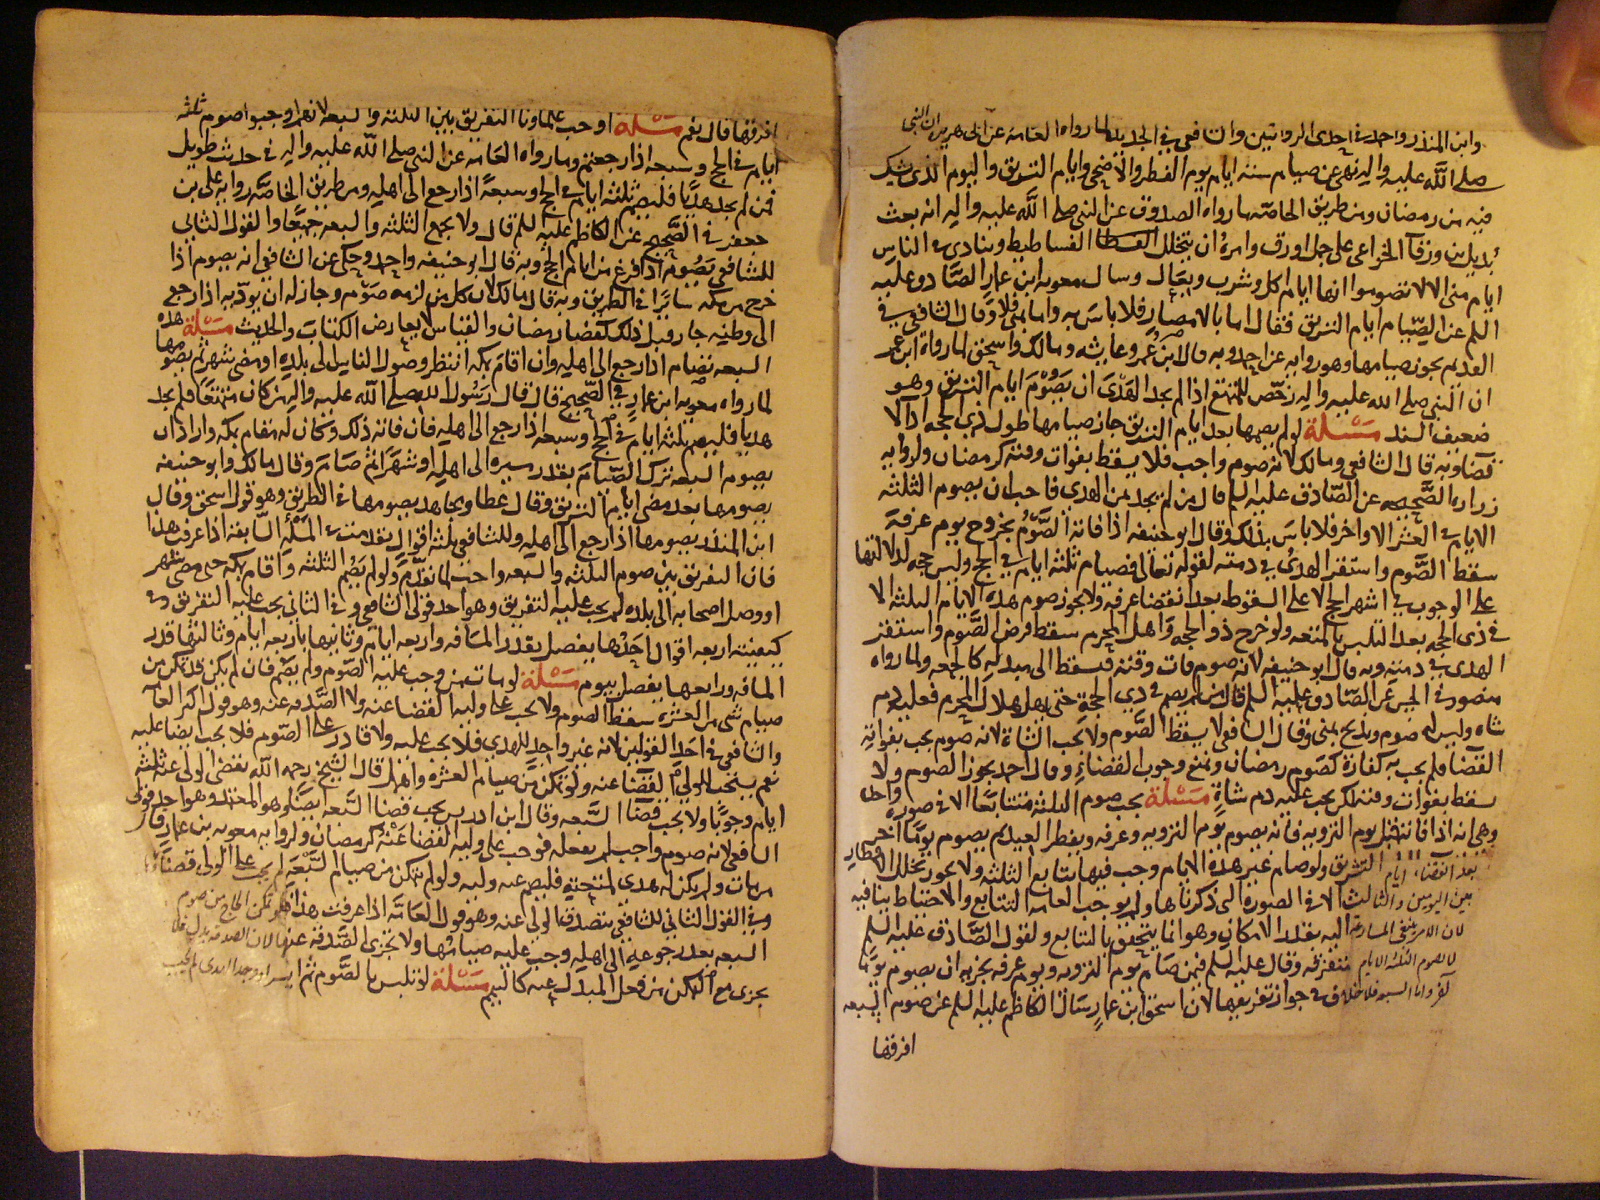 وابن المنذر واحمد في احدى الروايتين والشافعي في الجديد لما رواه العامة عن ابي هريرة ان النبي
صلى الله عليه واله نهى عن صيام ستة ايام يوم الفطر والاضحى وايام التشريق واليوم الذي يشك
فيه من رمضان ومن طريق الخاصة ما رواه الصدوق عن النبي صلى الله عليه واله انه بعث
بديل بن ورقآ الخزاعي على جمل اورق وامره ان يتخلل الفساطيط وينادي في الناس
ايام منى الا لا تصوموا انها ايام اكل وشرب وبعال وسال معوية ابن عمار الصادق عليه
السلم عن الصيام ايام التشريق فقال اما بالامصار فلا باس به واما بمنى فلا وقال الشافعي في
القديم يجوز صيامها وهو رواية عن احمد وبه قال ابن عمر وعايشة ومالك واسحق لما رواه ابن عمر
ان النبي صلى الله عليه واله رخص للمتمتع اذا لم يجد الهدي ان يصوم ايام التشريق وهو
ضعيف السند مسئلة لو لم يصمها بعد ايام التشريق جاز صيامها طول ذي الحجة ادآلا
قضآ وبه قال الشافعي ومالك لانه صوم واجب فلا يسقط بفوات وقته كرمضان ولرواية
زرارة الصحيحة عن الصادق عليه السلم قال من لم يجد ثمن الهدي فاحب ان يصوم الثلثة
الايام في العشر الاواخر فلا باس بذلك وقال ابو حنيفة اذا فاته الصوم بخروج يوم عرفة
سقط الصوم واستقر الهدي في ذمته لقوله تعالى فصيام ثلثة ايام في الحج وليس حجه لدلالتها
على الوجوب في اشهر الحج لا على السقوط بعد انقضآ عرفة ولا يجوز صوم هذه الايام الثلثة الا
في ذي الحجة بعد التلبس بالمتعة ولو خرج ذو الحجة واهل المحرم سقط فرض الصوم واستقر
الهدي في ذمته وبه قال ابو حنيفة لانه صوم فات وقته فيسقط الى مبدله كالجمعة ولما رواه
منصور في الحسن عن الصادق عليه السلم قال من لم يصم في ذي الحجة حتى يهل هلال المحرم فعليه دم
شاة وليس له صوم ويذبح بمنى وقال الشافعي لا يسقط الصوم ولا يجب الشاة لانه صوم يجب بفواته
القضآ فلم يجب به كفارة كصوم رمضان ونمنع وجوب القضاء وقال احمد يجوز الصوم ولا
يسقط بفوات وقته لكن يجب عليه دم شاة مسئلة يجب صوم الثلثة متتابعا الا في صورة واحدة
وهي انه اذا فاته قبل يوم التروية فانه يصوم يوم التروية وعرفة ويفطر العيد ثم يصوم يوما اخر
بعد انقضاء ايام التشريق ولو صام غير هذه الايام وجب فيها تتابع الثلثة ولا يجوز تخلل الافطار
بين اليومين والثالث الا في الصورة التي ذكرناها ولم يوجب العامة التتابع والاحتياط ينافيه
لان الامر يقتضي المسارعة اليه بقدر الامكان وهو انما يتحقق بالتتابع ولقول الصادق عليه السلم
لا يصوم الثلثة الايام متفرقة وقال عليه السلم فيمن صام يوم التروية ويوم عرفة يجزيه ان يصوم يوما
اخر واما السبعة فلا خلاف في جواز تفريقها لان اسحق ابن عمار سال الكاظم عليه السلم عن صوم السبعة
افرقها
افرقها قال نعم مسئلة اوجب علماونا التفريق بين الثلثة والسبعة لانهم اوجبوا صوم ثلثة
ايام في الحج وسبعة اذا رجعتم وما رواه العامة عن النبي صلى الله عليه واله في حديث طويل
فمن لم يجد هديا فليصم ثلثة ايام في الحج وسبعة اذا رجع الى اهله ومن طريق الخاصة رواية علي بن
جعفر في الصحيح عن الكاظم عليه السلم قال ولا يجمع الثلثة والسبعة جميعا والقول الثاني
للشافعي يصوم اذا فرغ من ايام الحج وبه قال ابو حنيفة واحمد وحكي عن الشافعي انه يصوم اذا
خرج من مكة سائرا في الطريق وبه قال مالك لان كل من لزمه صوم وجاز له ان يوديه اذا رجع
الى وطنه جاز قبل ذلك كقضا رمضان والقياس لا يعارض الكتاب والحديث مسئلة هذه
السبعة تصام اذا رجع الى اهله وان اقام بمكة انتظر وصول الناس الى بلده او مضى شهر ثم يصومها
لما رواه معوية ابن عمار في الصحيح قال قال رسول الله صلى الله عليه واله من كان متمتعا فلم يجد
هديا فليصم ثلثة ايام في الحج وسبعة اذا رجع الى اهله فان فاته ذلك وكان له مقام بمكة واراد ان
يصوم السبعة ترك الصيام بقدر سيره الى اهله او شهرا ثم صام وقال مالك وابو حنيفة
يصومها بعد مضي ايام التشريق وقال عطا ومجاهد يصومها في الطريق وهو قول اسحق وقال
ابن المنذر يصومها اذا رجع الى اهله وللشافعي ثلثة اقوال تقدمت في المسئلة السابقة اذا عرفت هذا
فان التفريق بين صوم الثلثة والسبعة واجب لما تقدم ولو لم يصم الثلثة واقام بمكة حتى مضى شهر
او وصل اصحابه الى بلده لم يجب عليه التفريق وهو احد قولي الشافعي وفي الثاني يجب عليه التفريق وفي
كيفيته اربعة اقوال احدها يفصل بقدر المسافة واربعة ايام وثانيها باربعة ايام وثالثها قدر
المسافة ورابعها يفصل بيوم مسئلة لو مات من وجب عليه الصوم ولم يصم فان لم يكن قد تمكن من
صيام شي من العشرة سقط الصوم ولا يجب على وليه القضا عنه ولا الصدقة عنه وهو قول اكثر العامة
والشافعي في احد القولين لانه غير واجد للهدي فلا يجب عليه ولا قادر على الصوم فلا يجب ايضا عليه
نعم يستحب للولي القضآ عنه ولو تمكن من صيام العشرة واهمل قال الشيخ رحمه الله يقضي الولي عنه ثلثة
ايام وجوبا ولا يجب قضآ السبعة وقال ابن ادريس يجب قضا السبعة ايضا وهو المعتمد وهو احد قولي
الشافعي لانه صوم واجب لم يفعله فوجب على وليه القضا عنه كرمضان ولرواية معوية بن عمار قال
من مات ولم يكن له هدي لمتعته فليصم عنه وليه ولو لم يتمكن من صيام السبعة لم يجب على الولي قضآؤها
وفي القول الثاني للشافعي يتصدق الولي عنه وهو قول العامة اذا عرفت هذا فلو تمكن الحاج من صوم
السبعة بعد رجوعه الى اهله وجب عليه صيامها ولا تجزى الصدقة عنها لان الصدقة بدل فلا
يجزي مع التمكن من فعل المبدل عنه كالتيمم مسئلة لو تلبس بالصوم ثم ايسر او وجد الهدي لم يجب